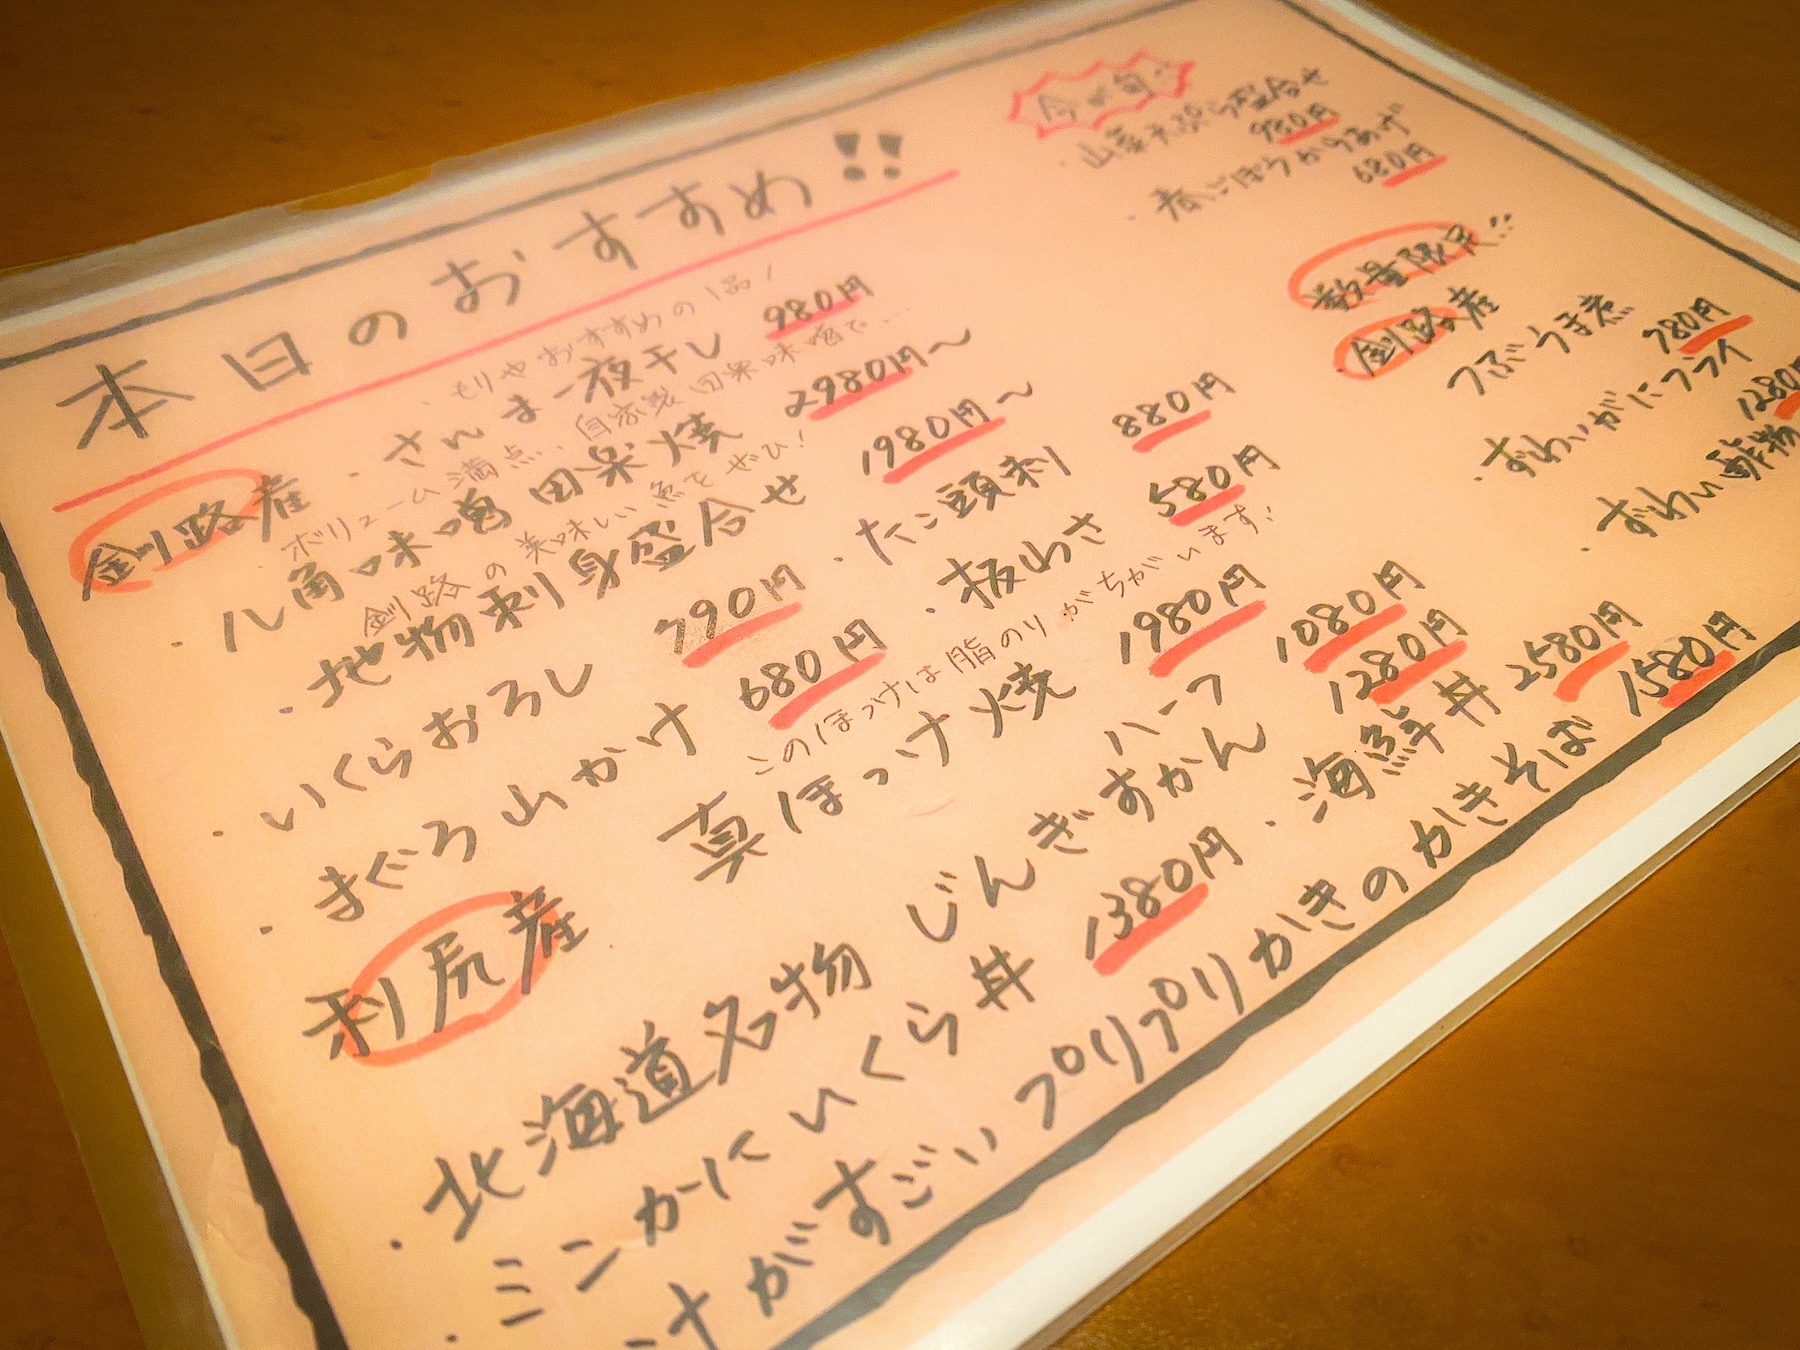 本日のおすすめ!!
・もりやおすすめの1品!
釧路産・さんま一夜干し 980円
ボリューム満点、自家製田楽味噌で…
・八角味噌田楽焼 2980円～
釧路の美味しい魚をぜひ!
・地物刺身盛合せ 1980円～
・いくらおろし 790円
・たこ頭刺 880円
・まぐろ山かけ 680円
・板わさ 580円
このほっけは脂のりがちがいます!
利尻産 真ほっけ焼 1980円
ハーフ 1080円
・北海道名物 じんぎすかん 1280円
・ミンかにいくら丼 1380円
・海鮮丼 2580円
汁がすごいプリプリかきのかきそば 1580円
今が旬!!
・山菜天ぷら盛合せ 980円
・春ごぼうからあげ 680円
数量限定!!
・釧路産 つぶうま煮 780円
・ずわいがにフライ 1280円
・ずわい酢物